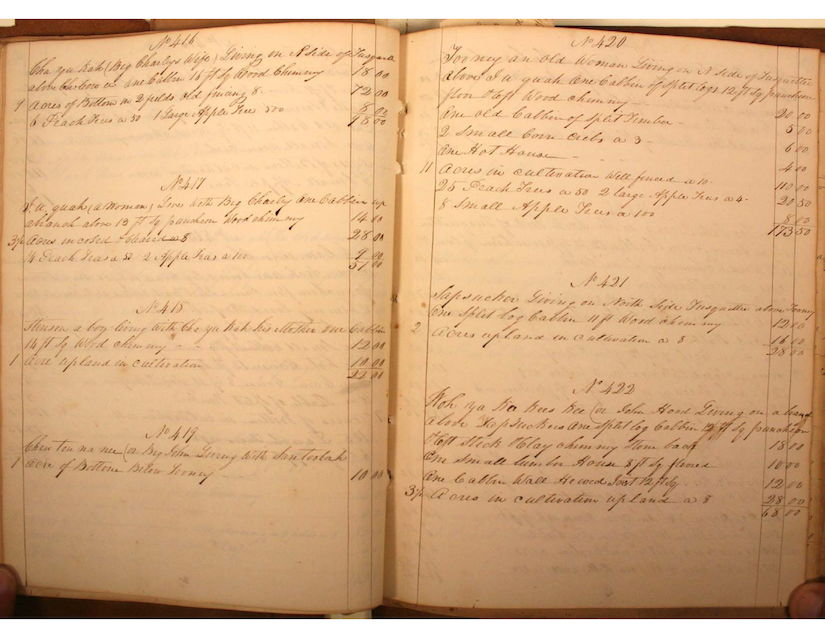 No 416
Cha yu kah (Big Charleys Wife) Living on N side of Tusquit
above Choboro in one Cabbin 14 ft Sq Wood Chimny 18 00
9 Acres of Bottom in 2 fields old fencing 8 72 00
6 Peach Trees a 50 1 Large Apple Tree 500 8 00
98 00
No 417
quah, (a Woman) Live with Big Charley One Cabbin up
a branch above 13 ft Sq puncheon Wood chimny 14 00
3½ Acres inclosed & cleared a 8 28 00
14 Peach Trees a 50 2 Apple Trees a 100 9 00
51 00
No 418
a boy living with Cha yu Kah his Mother one Cabbin
14 ft Sq Wood chimny 12 00
1 Acre upland in cultivation 10 00
22 00
No 419
Chu ton na nee (or Big John Living With
1 Acre of Bottom Below Tooney 10 00
No 420
Too ney an old Woman Living on N side of Tusquittee
above I u quah One Cabbin of Split logs 12 ft Sq puncheon
floor & loft Wood chimny 20 00
One old Cabbin of Split Timber 5 00
2 Small Corn Cribs a 3 6 00
One Hot House 4 00
11 Acres in cultivation Well fenced a 10 110 00
25 Peach Trees a 50 2 large Apple Trees a 4 20 50
8 Small Apple Trees a 100 8 00
173 50
No 421
Sapsucker Living on North Side Tusquittee above Tooney
One Split log Cabbin 11 ft Wood chimny 12 00
2 Acres upland in cultivation a 8 16 00
28 00
No 422
Koh ya Ka Kees Kee (or John Hord Living on a branch
above Sapsuckers One split log Cabbin 12 ft Sq puncheon
& loft Stick & Clay chimny Stone back 18 00
One Small lumber House 8 ft Sq floored 10 00
One Cabbin Wall Hewed Joist 12 ft Sq 12 00
3½ Acres in cultivation upland a 8 28 00
68 00